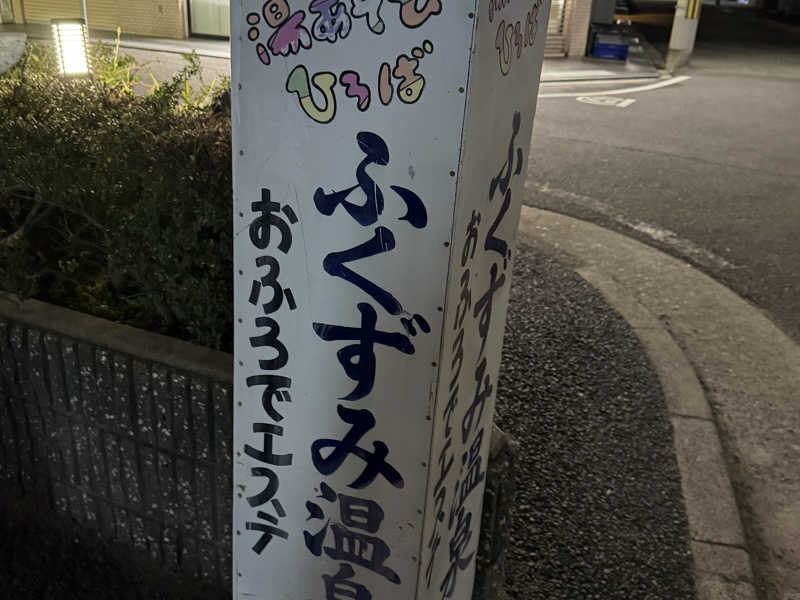 湯あそび
ひろば
ふくずみ温泉
おふろでエステ
ひろば
ふくずみ温泉
おふろでエステ